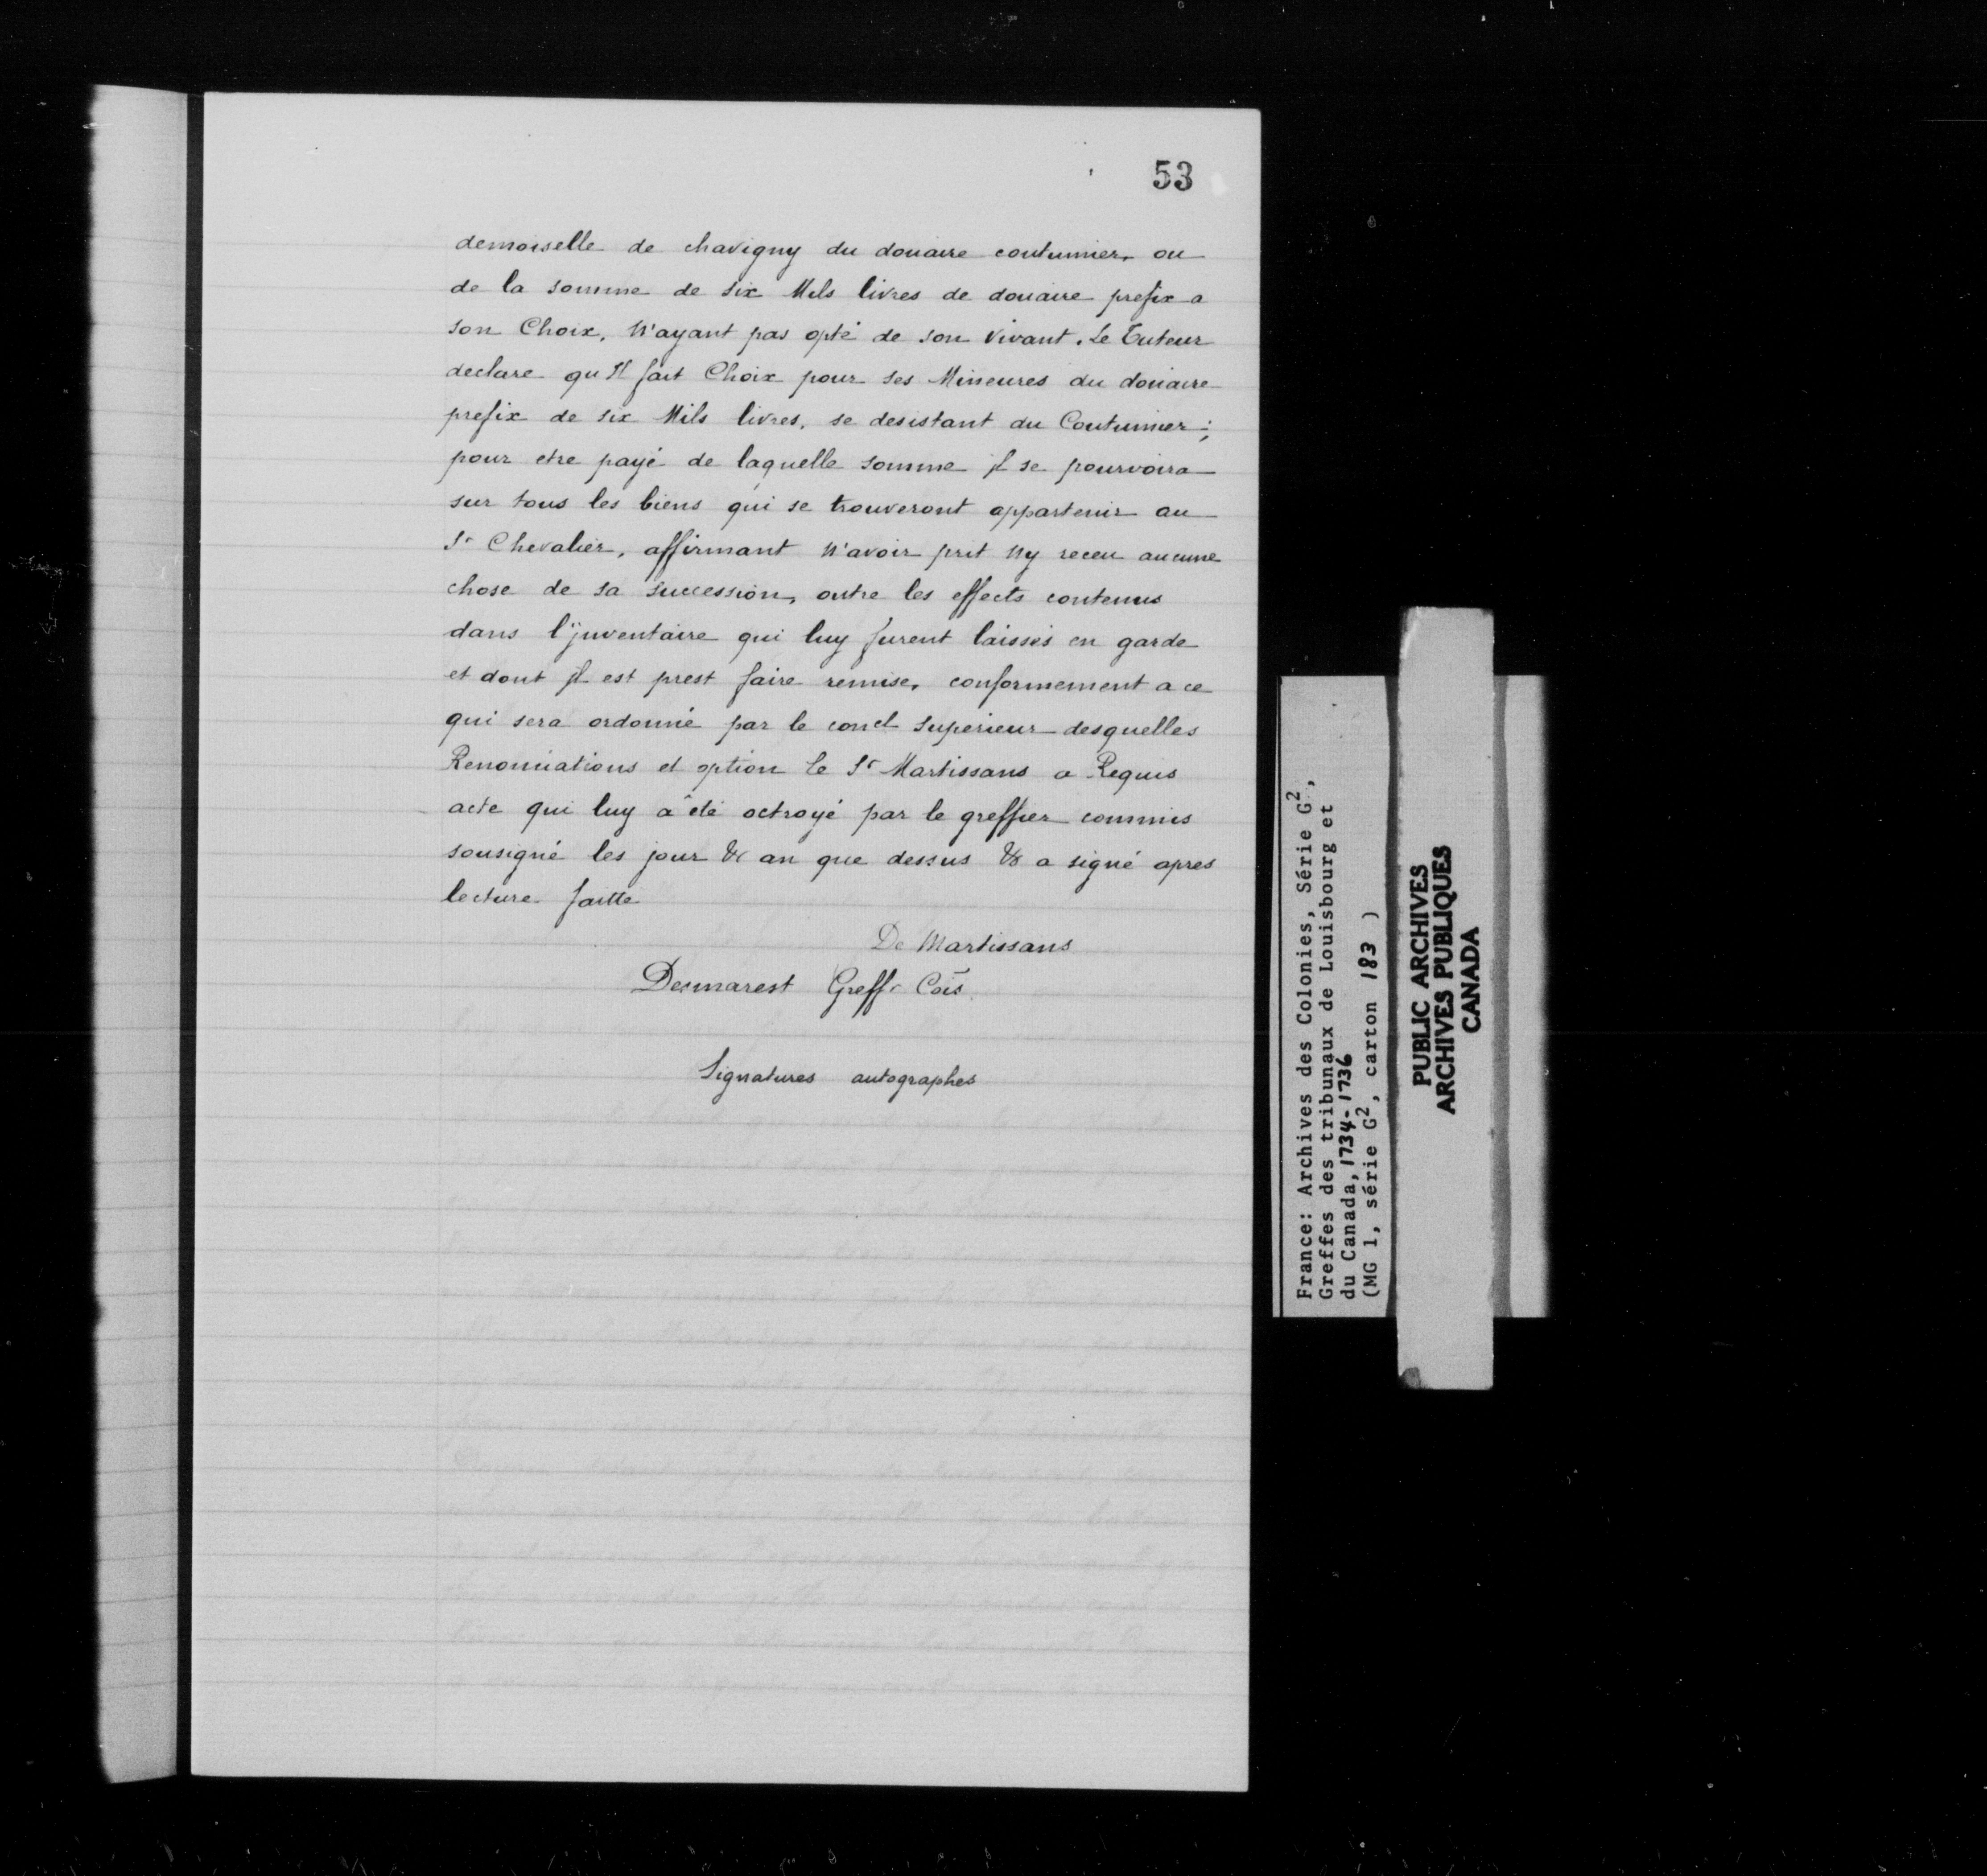 53
demoiselle de chavigny du douaire coutumier, ou
de la somme de six Mils livres de douaire prefix a
son Choix, N'ayant pas opté de son Vivant. Le Tuteur
declare qu'Il fait Choix pour ses Mineures du douaire
prefix de six Mils livres, se desistant du Coutumier;
pour etre payé de laquelle somme jl se pourvoira
sur tous les biens qui se trouveront appartenir au
Sr Chevalier, affirmant N'avoir prit Ny receu aucune
chose de sa succession, outre les effects contenus
dans l'jnventaire qui luy furent laissés en garde
et dont jl est prest faire remise, conformement a ce
qui sera ordonné par le concl superieur desquelles
Renonciations et option le Sr Martissans a Requis
acte qui luy a été octroyé par le greffier commis
sousigné les jour & an que dessus & a signé apres
lecture faitte
De Martissans
Desmarest Greffr Cois
Signatures autographes
France: Archives des Colonies, Série G2,
Greffes des tribunaux de Louisbourg et
du Canada, 1734-1736
(MG 1, série G2, carton 183 )
PUBLIC ARCHIVES
ARCHIVES PUBLIQUES
CANADA